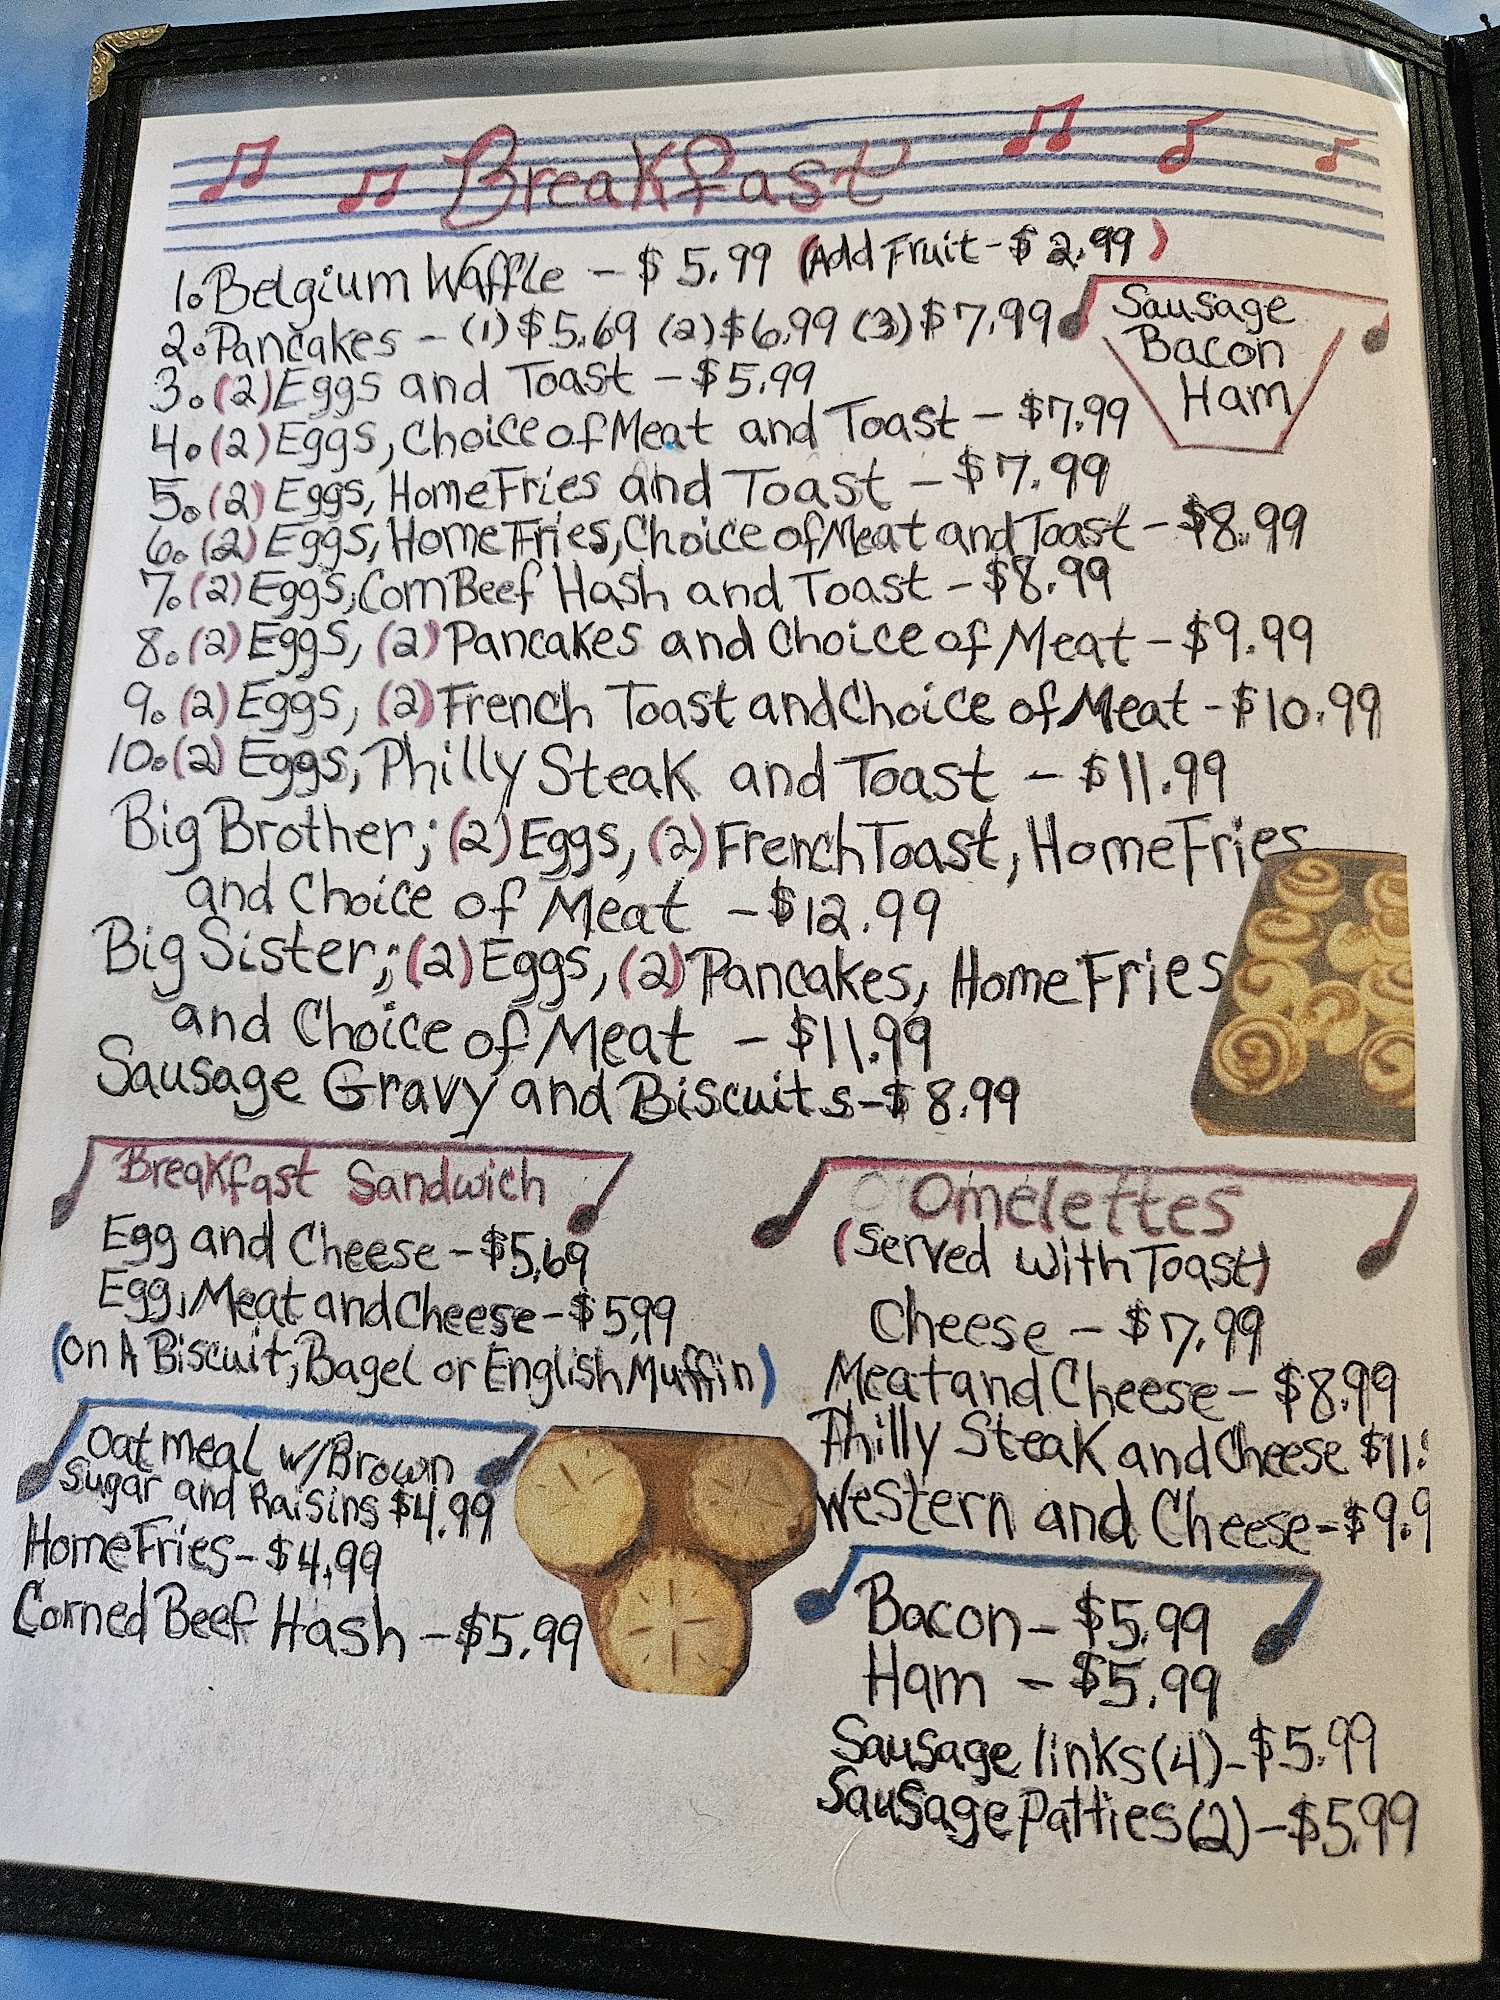 Breakfast
1. Belgium Waffle - $5.99 (Add Fruit - $2.99)
2. Pancakes - (1) $5.69 (2) $6.99 (3) $7.99
Sausage
Bacon
Ham
3. (2) Eggs and Toast - $5.99
4. (2) Eggs, Choice of Meat and Toast - $7.99
5. (2) Eggs, Home Fries and Toast - $7.99
6. (2) Eggs, Home Fries, Choice of Meat and Toast - $8.99
7. (2) Eggs, Corn Beef Hash and Toast - $8.99
8. (2) Eggs, (2) Pancakes and Choice of Meat - $9.99
9. (2) Eggs, (2) French Toast and Choice of Meat - $10.99
10. (2) Eggs, Philly Steak and Toast - $11.99
Big Brother; (2) Eggs, (2) French Toast, Home Fries
and Choice of Meat - $12.99
Big Sister; (2) Eggs, (2) Pancakes, Home Fries
and Choice of Meat - $11.99
Sausage Gravy and Biscuits - $8.99
Breakfast Sandwich
Egg and Cheese - $5.69
Egg, Meat and Cheese - $5.99
(on A Biscuit, Bagel or English Muffin)
Oatmeal w/Brown
Sugar and Raisins $4.99
Home Fries - $4.99
Corned Beef Hash - $5.99
Omelettes
(Served with Toast)
Cheese - $7.99
Meat and Cheese - $8.99
Philly Steak and Cheese $11.
Western and Cheese - $9.9
Bacon - $5.99
Ham - $5.99
Sausage links (4) - $5.99
Sausage Patties (2) - $5.99